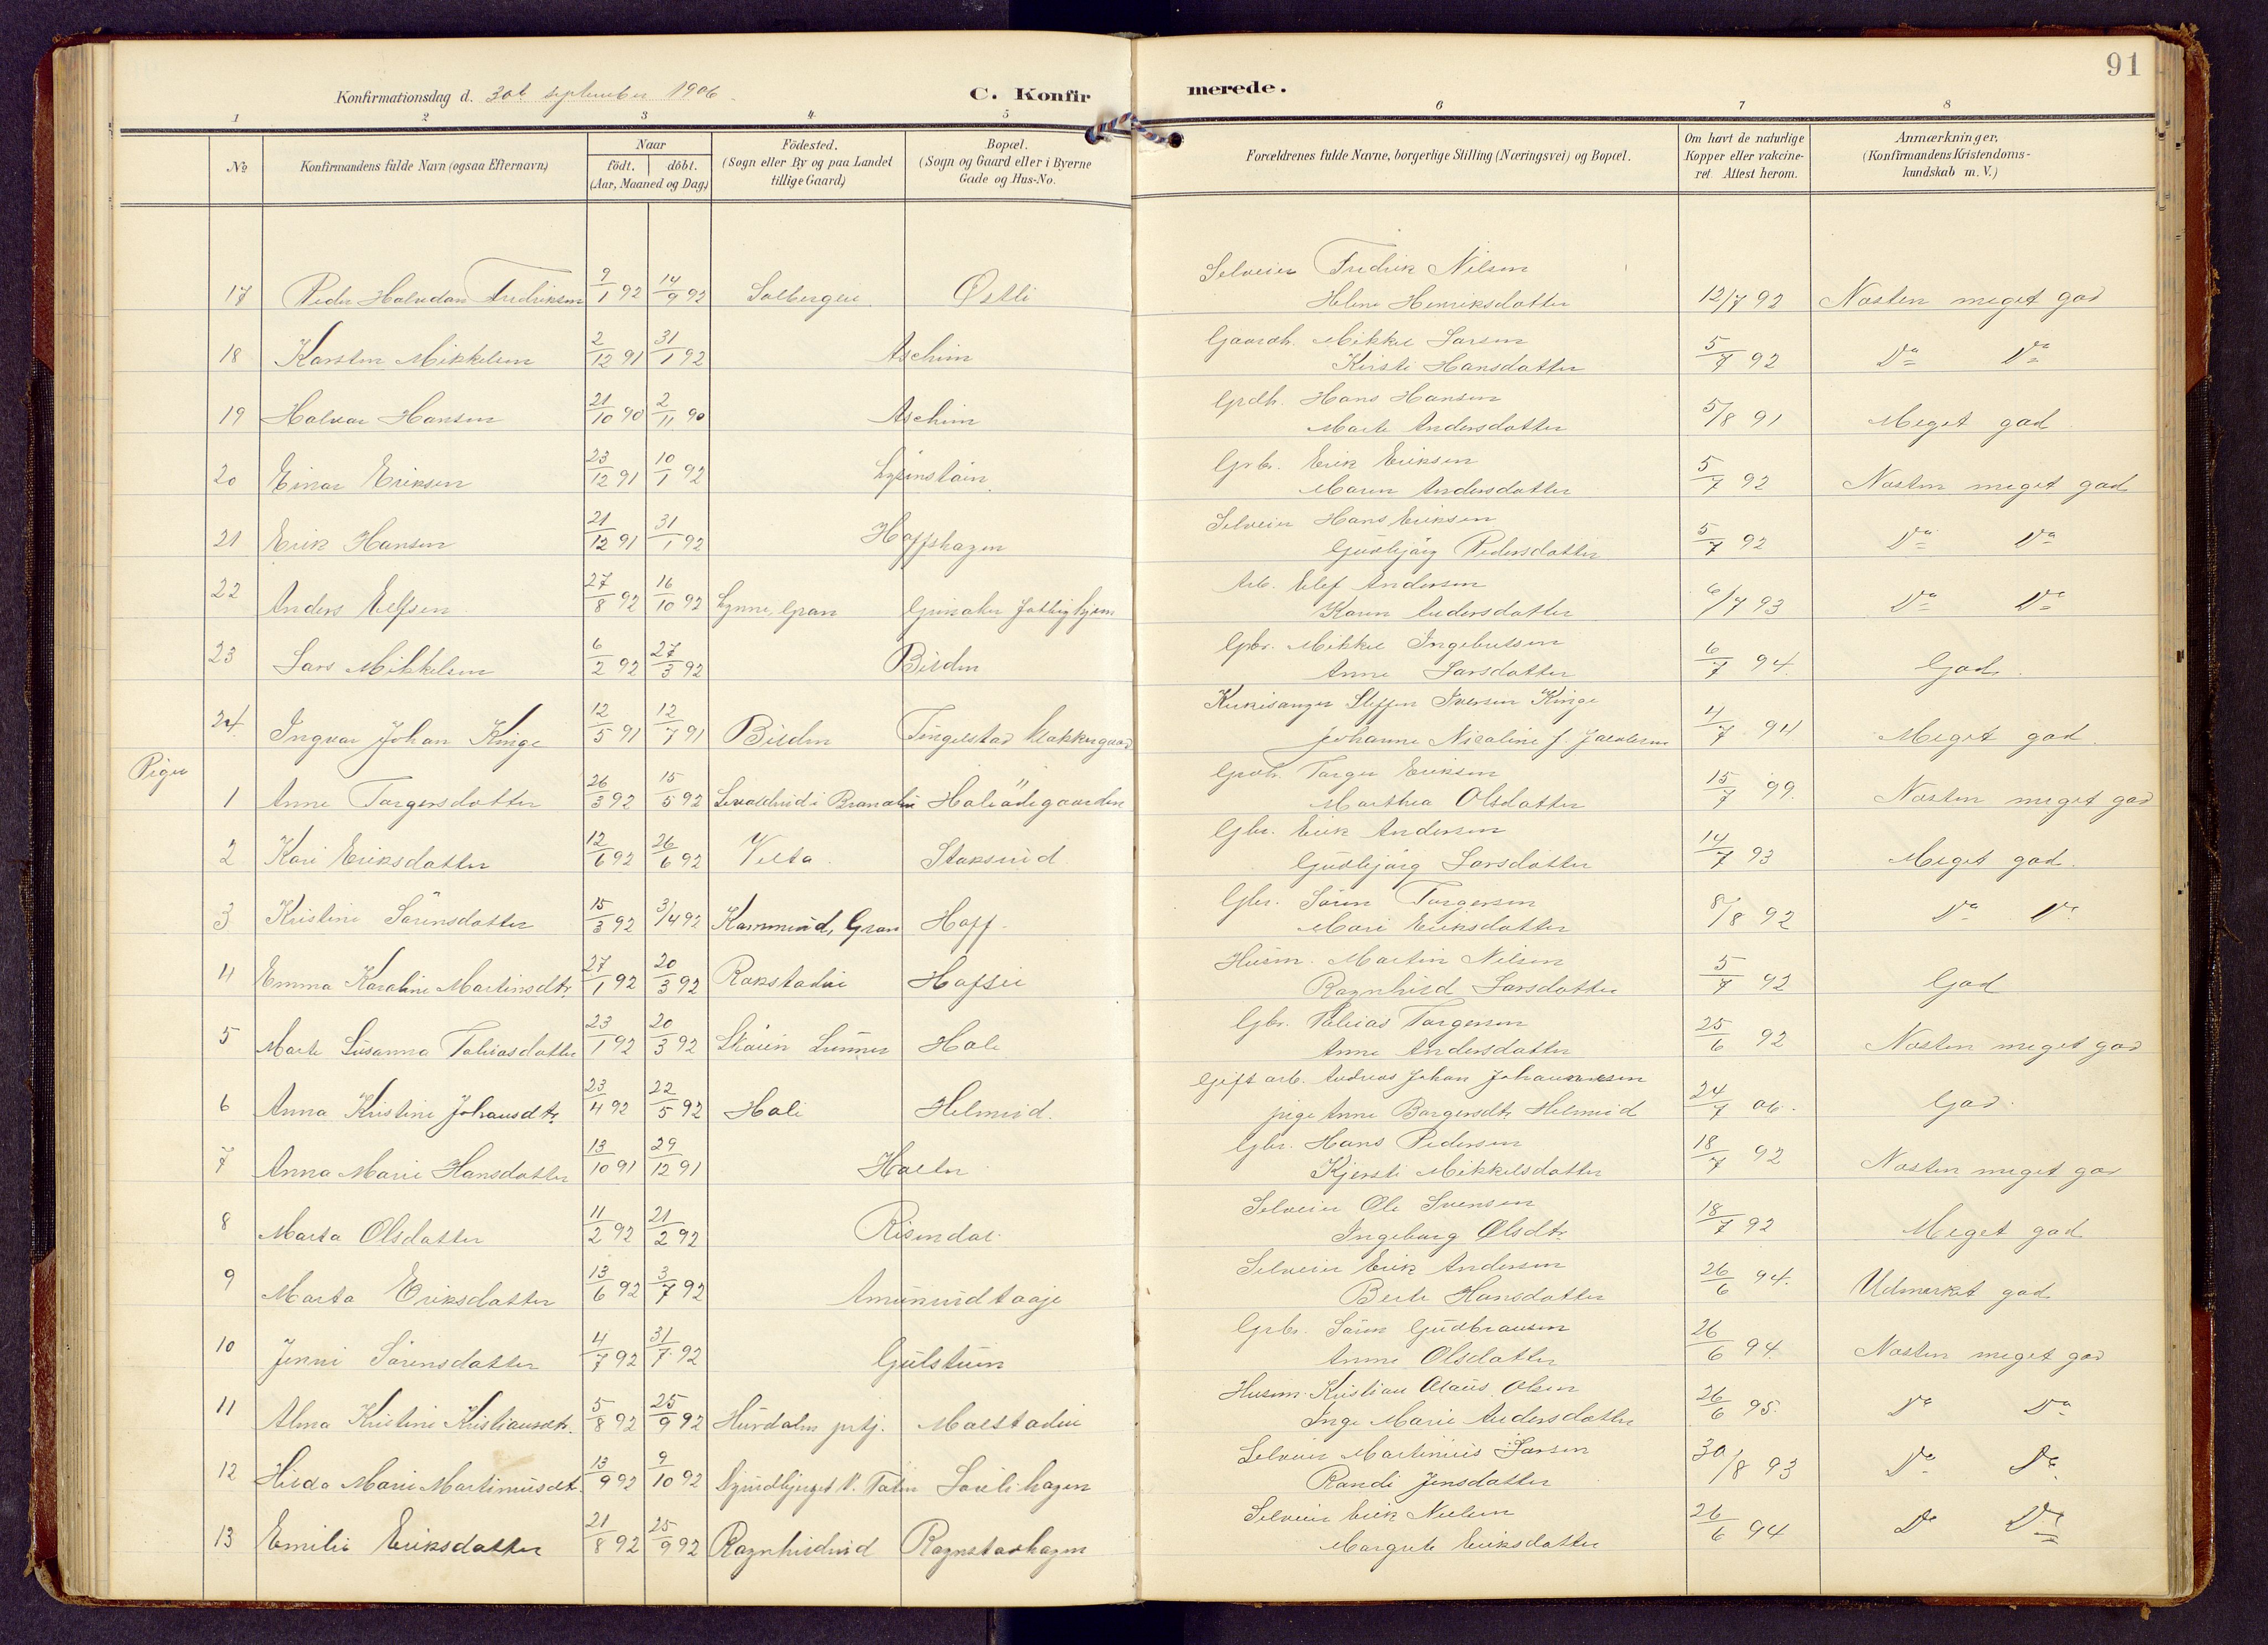 91
Konfirmationsdag d. 30t september 1906. C. Konfirmerede.
1 2 3 4 5 6 7 8
No
Konfirmandens fulde Navn (ogsaa Efternavn)
Naar
födt. döbt.
(Aar, Maaned og Dag)
Födested.
(Sogn eller By og paa Landet
tillige Gaard)
Bopæl.
(Sogn og Gaard eller i Byerne
Gade og Hus-No.
Forældrenes fulde Navne, borgerlige Stilling (Næringsvei) og Bopæl.
Om havt de naturlige
Kopper eller vakcine-
ret. Attest herom.
Anmærkninger,
(Konfirmandens Kristendoms-
kundskab m. V.)
Selveier Fredrik Nilsen
17 Peder Halvdan Fredriksen 9/1 92 14/9 92 Solbergeie Østli Helene Henriksdatter 12/7 92 Næsten meget god
Gaardb. Mikkel Larsen
18 Karsten Mikkelsen 2/12 91 31/1 92 Aschim Kirsti Hansdatter 5/7 92 Do Do
Grdb. Hans Hansen
19 Halvar Hansen 21/10 90 2/11 90 Aschim Marte Andersdatter 5/8 91 Meget god
Grbr. Erik Eriksen
20 Einar Eriksen 23/12 91 10/1 92 Maren Andersdatter 5/7 92 Næsten meget god
Selveier Hans Eriksen
21 Erik Hansen 21/12 91 31/1 92 Hoffshagen Gudbjörg Pedersdatter 5/7 92 Do Do
Arb. Elef Andersen
22 Anders Elefsen 27/8 92 16/10 92 Lynne, Gran Grinaker Karen Andersdatter 6/7 93 Do Do
Gbr. Mikkel Ingebretsen
23 Lars Mikkelsen 6/2 92 27/3 92 Bilden Anne Larsdatter 6/7 94 God.
Kirkesanger Steffen Iversen Kinge
24 Ingvar Johan Kinge 12/5 91 12/7 91 Bilden Tingelstad Klokkergaard Johanne Nicoline f. Jacobsen 4/7 94 Meget god.
Piger
Grdb. Torger Eriksen
1 Anne Torgersdatter 26/3 92 15/5 92 Hole ödegaarden Marthea Olsdatter 15/7 99. Næsten meget god
Gbr. Erik Andersen
2 Kari Eriksdatter 12/6 92 26/6 92 Velta. Staksrud Gudbjörg Larsdatter 14/7 93 Meget god.
Gbr. Sören Torgersen
3 Kristine Sörensdatter 15/3 92 3/4 92 Kammerud, Gran Hoff Mari Eriksdatter 8/8 92 Do Do
Husm. Martin Nilsen
4 Emma Karoline Martinsdtr. 27/1 92 20/3 92 Rokstadeie Hofseie Ragnhild Larsdatter 5/7 92 God
Gbr. Tobias Torgersen
5 Marte Susanna Tobiasdatter 23/1 92 20/3 92 Skøien Lunner Hole Anne Andersdatter 25/6 92 Næsten meget god
Gift arb. Andreas Johan Johannesen
6 Anna Kristine Johansdtr. 23/4 92 22/5 92 Hole Helmeid. pige Anne Borgersdtr. Helmeid 24/7 06. God.
Gbr. Hans Pedersen
7 Anna Marie Hansdatter 13/10 91 29/12 91 Holter Kjersti Mikkelsdatter 18/7 92 Næsten meget god
Selveier Ole Svensen
8 Marta Olsdatter 11/2 92 21/2 92 Risendal. Ingeborg Olsdtr. 18/7 92 Meget god
Selveier Erik Andersen
9 Marta Eriksdatter 13/6 92 3/7 92 Berte Hansdatter 26/6 94. Udmerket god
Grbr. Sören Gudbransen
10 Jenni Sörensdatter 4/7 92 31/7 92 Gulstuen Anne Olsdatter 26/6 94. Næsten meget god
Husm. Kristian Olaus Olsen
11 Alma Kristine Kristiansdtr. 5/8 92 25/9 92 Hurdalen prstj. Molstadeie Inge Marie Andersdatter 26/6 95. Do Do
Selveier Martinius Larsen
12 Hilda Marie Martiniusdtr. 13/9 92 9/10 92 V. Toten Randi Jensdatter 30/8 93 Do Do.
Selveier Erik Nielsen
13 Emilie Eriksdatter 21/8 92 25/9 92 Ragnhildrud Rognstadhagen Margrete Eriksdatter 26/6 94 Do Do